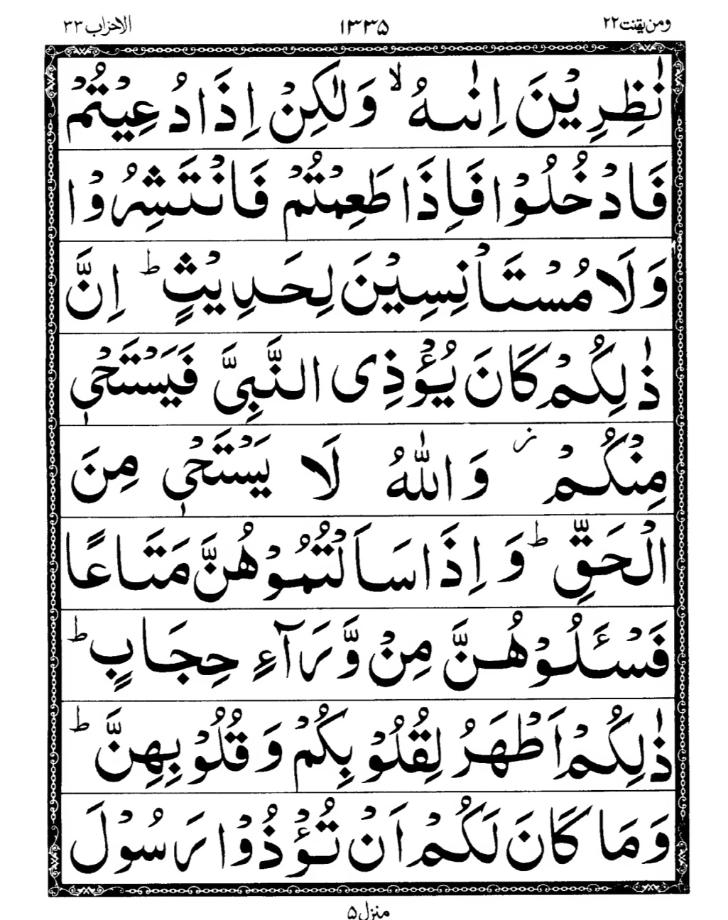 ومن يقنت٢٢ ١٣٣٥ الاحزاب٣٣
نٰظِرِيْنَ اِنٰىهُ ۙ وَلٰكِنْ اِذَا دُعِيْتُمْ
فَادْخُلُوْا فَاِذَا طَعِمْتُمْ فَانْتَشِرُوْا
وَلَا مُسْتَاْنِسِيْنَ لِحَدِيْثٍ ؕ اِنَّ
ذٰلِكُمْ كَانَ يُؤْذِى النَّبِىَّ فَيَسْتَحْىٖ
مِنْكُمْ ز وَاللّٰهُ لَا يَسْتَحْىٖ مِنَ
الْحَقِّ ؕ وَ اِذَا سَاَلْتُمُوْهُنَّ مَتَاعًا
فَسْـَٔلُوْهُنَّ مِنْ وَّرَآءِ حِجَابٍ ؕ
ذٰلِكُمْ اَطْهَرُ لِقُلُوْبِكُمْ وَ قُلُوْبِهِنَّ ؕ
وَمَا كَانَ لَكُمْ اَنْ تُؤْذُوْا رَسُوْلَ
منزل٥